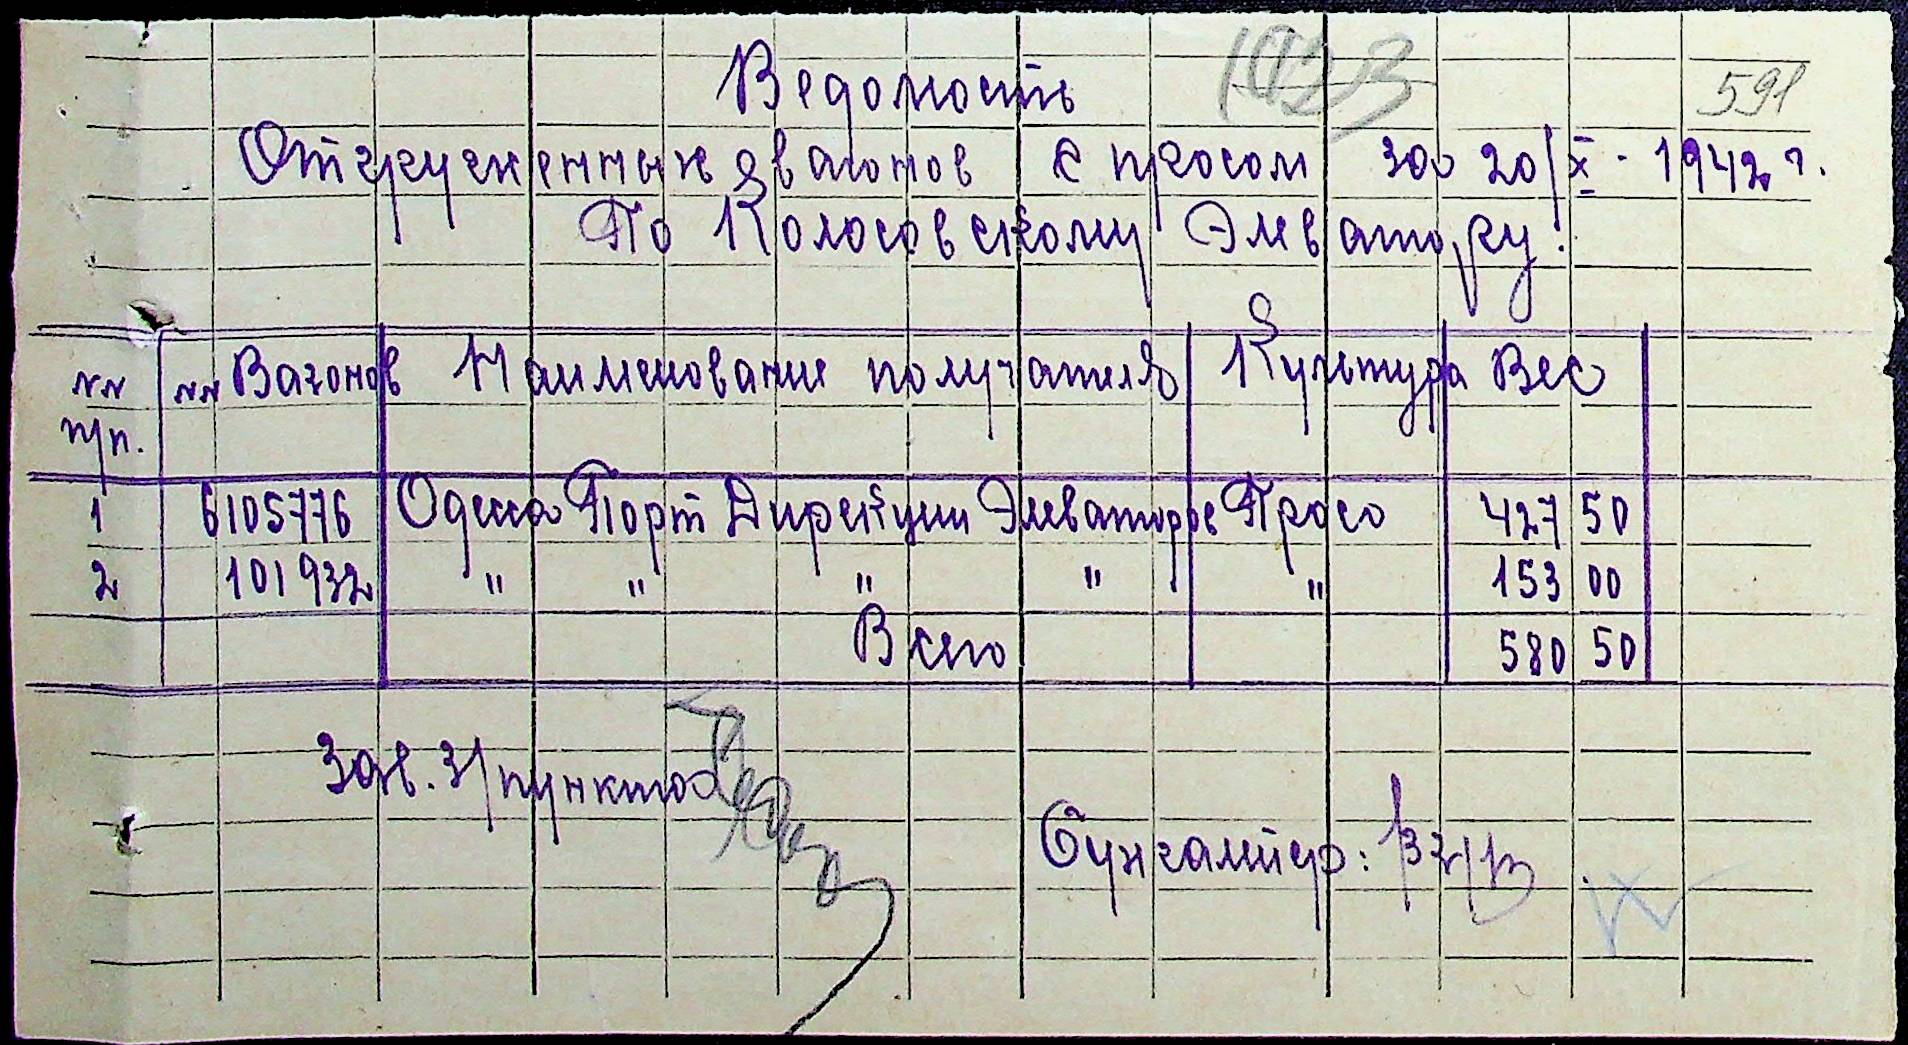 1023
591
Ведомость
Отгруженных вагонов с просом за 20/X - 1942 г.
По Колосовскому Элеватору.
№№ п/п. №№ Вагонов Наименование получателя Культура Вес
1 6105776 Одесса Порт Дирекции Элеваторов Просо 427 50
2 101932 " " " " " 153 00
Всего 580 50
Зав. З/пункта
Бухгалтер: